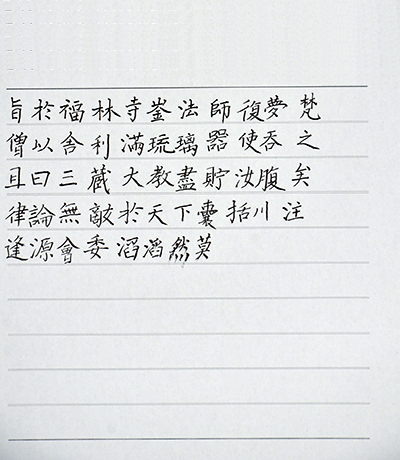 旨於福林寺崟法師復夢梵
僧以舍利滿琉璃器使吞之
且曰三藏大教盡貯汝腹矣
律論無敵於天下囊括川注
逢源會委滔滔然莫